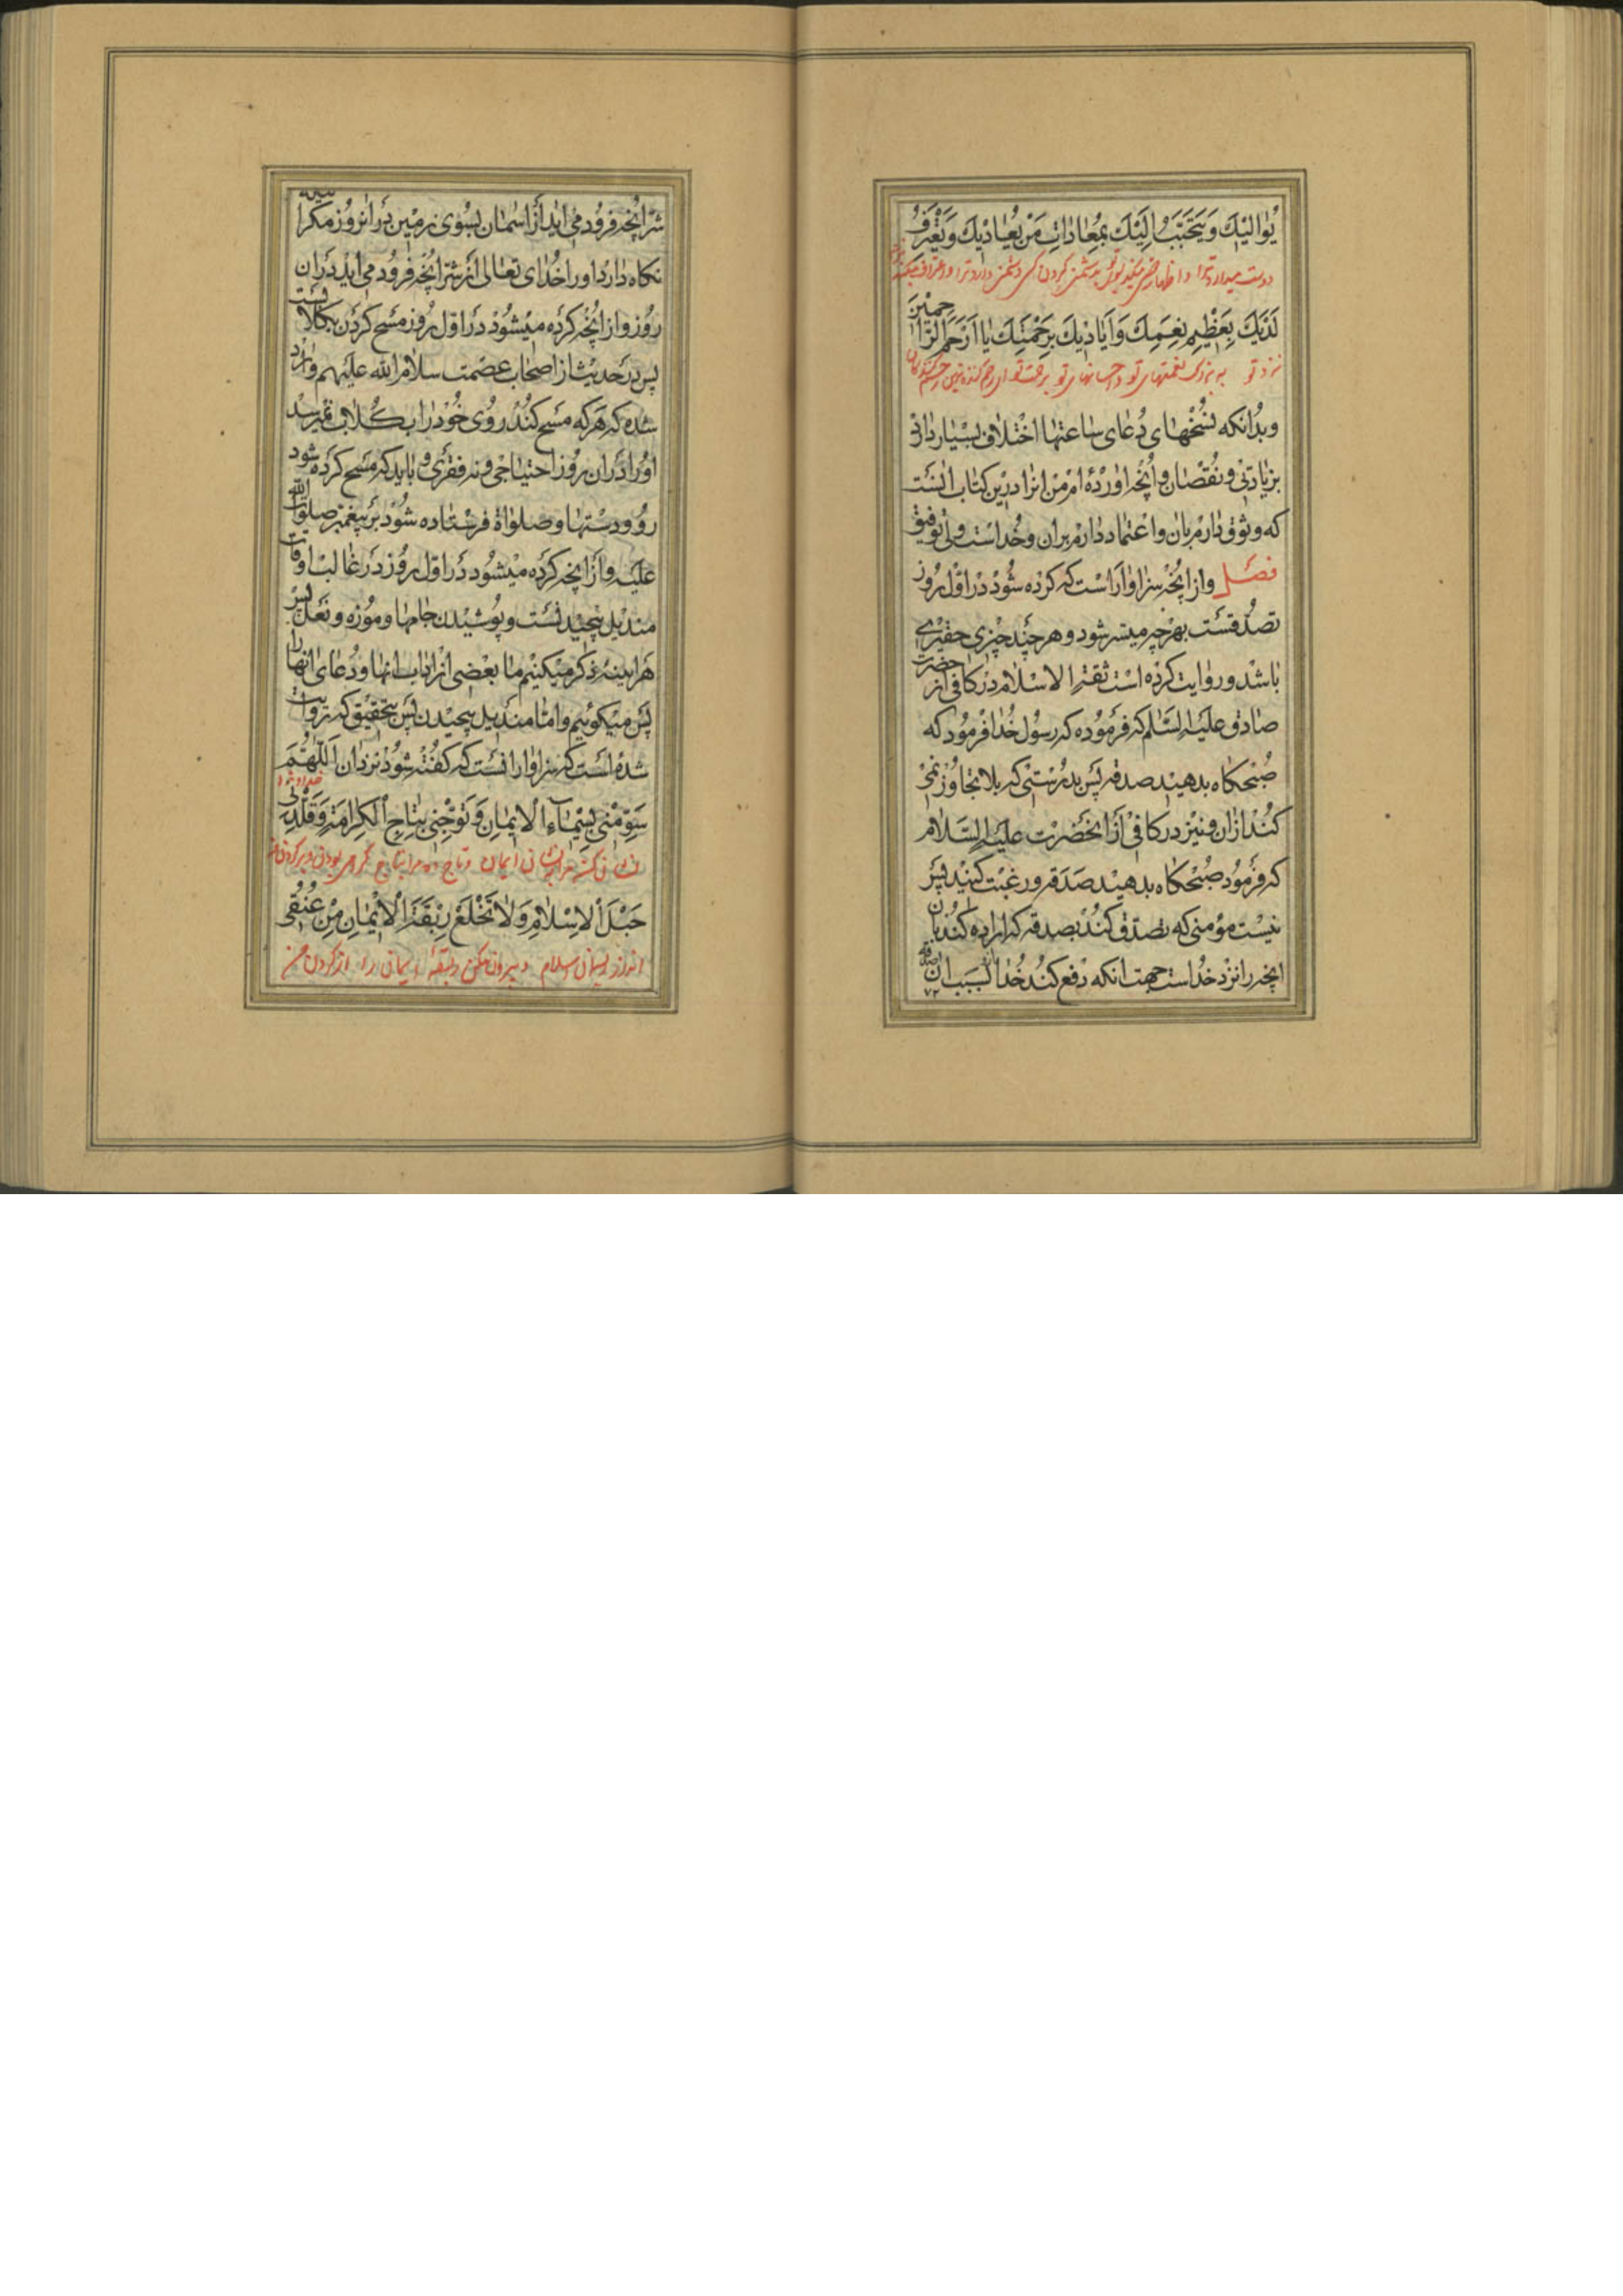 يُوٰاليكَ وَيَتَحَبَّبُ اِلَيْكَ بِمُعٰادٰاتِ مَنْ يُعٰاديكَ وَيَعْتَرِفُ
دوست میدارد ترا و اظهار میکند بتو بدشمنی کردن کسی دشمن دارد ترا و اعتراف میکند
لَدَيْكَ بِعَظيمِ نِعَمِكَ وَاَيٰاديكَ بِرَحْمَتِكَ يٰا اَرْحَمَ الرّٰاحِمينَ
نزد تو به بزرگ نعمتهای تو و احسانهای تو برحمت تو ای رحم کننده ترین رحم کنندگان
وبدانکه نسخهای دعای ساعتها اختلاف بسیار دارد
بزیادتی و نقصان و آنچه آورده‌ام من انرا درین کتاب آنست
که وثوق دارم بان و اعتماد دارم بران و خداست ولی توفیق
فصل وازانچه سزاوار است که کرده شود در اول روز
تصدقست بهرچه میسر شود و هرچند چیزی حقیری
باشد و روایت کرده است ثقة الاسلام در کافی از حضرت
صادق علیه السلم که فرموده که رسول خدا فرمود که
صبحکاه بدهید صدقه پس بدرستی که بلا تجاوز نمی
کند ازان و نیز در کافی از انحضرت علیه السلام
که فرمود صبحکاه بدهید صدقه و رغبت کنید پس
نیست مؤمنی که تصدق کند بصدقه که اراده کند بان
انچه را نزد خداست جهت انکه دفع کند خدا بسبب ان صدقه
۷۲
شر انچه فرود می اید از اسمان بسوی زمین در انروز مکر
نکاه دارد او را خدای تعالی از شر انچه فرود می اید دران
روز و از انچه کرده میشود در اول روز مسح کردن بکلابست
پس در حدیث از اصحاب عصمت سلام الله علیهم وارد
شده که هرکه مسح کند روی خود را بکلاب نمیرسد
او را دران روز احتیاجی و نه فقری و باید که مسح کرده شود
رو و دستها و صلواة فرستاده شود بر پیغمبر صلوات الله
علیه و از انچه کرده میشود در اول روز در غالب اوقات
مندیل پیچیدنست و پوشیدن جامها و موزه و نعل پس
هراینه ذکر میکنیم ما بعضی از اداب انها و دعای انها را
پس میکوئیم و اما مندیل پیچیدن پس بتحقیق که روایت
شده است که سزاوار انست که کفته شود نزد ان اَللّٰهُمَّ
خداوندا
سَوِّمْنى بِسيمٰاءِ الْايمٰانِ وَتَوِّجْنى بِتٰاجِ الْكَرٰامَةِ وَقَلِّدْنى
ایمان و تاج ده مرا بتاج
حَبْلَ الْاِسْلٰامِ وَلٰا تَخْلَعْ رِبْقَةَ الْايمٰانِ مِنْ عُنُقى
ریسمان اسلام و بیرون مکن ربقهٔ ایمان را از کردن من